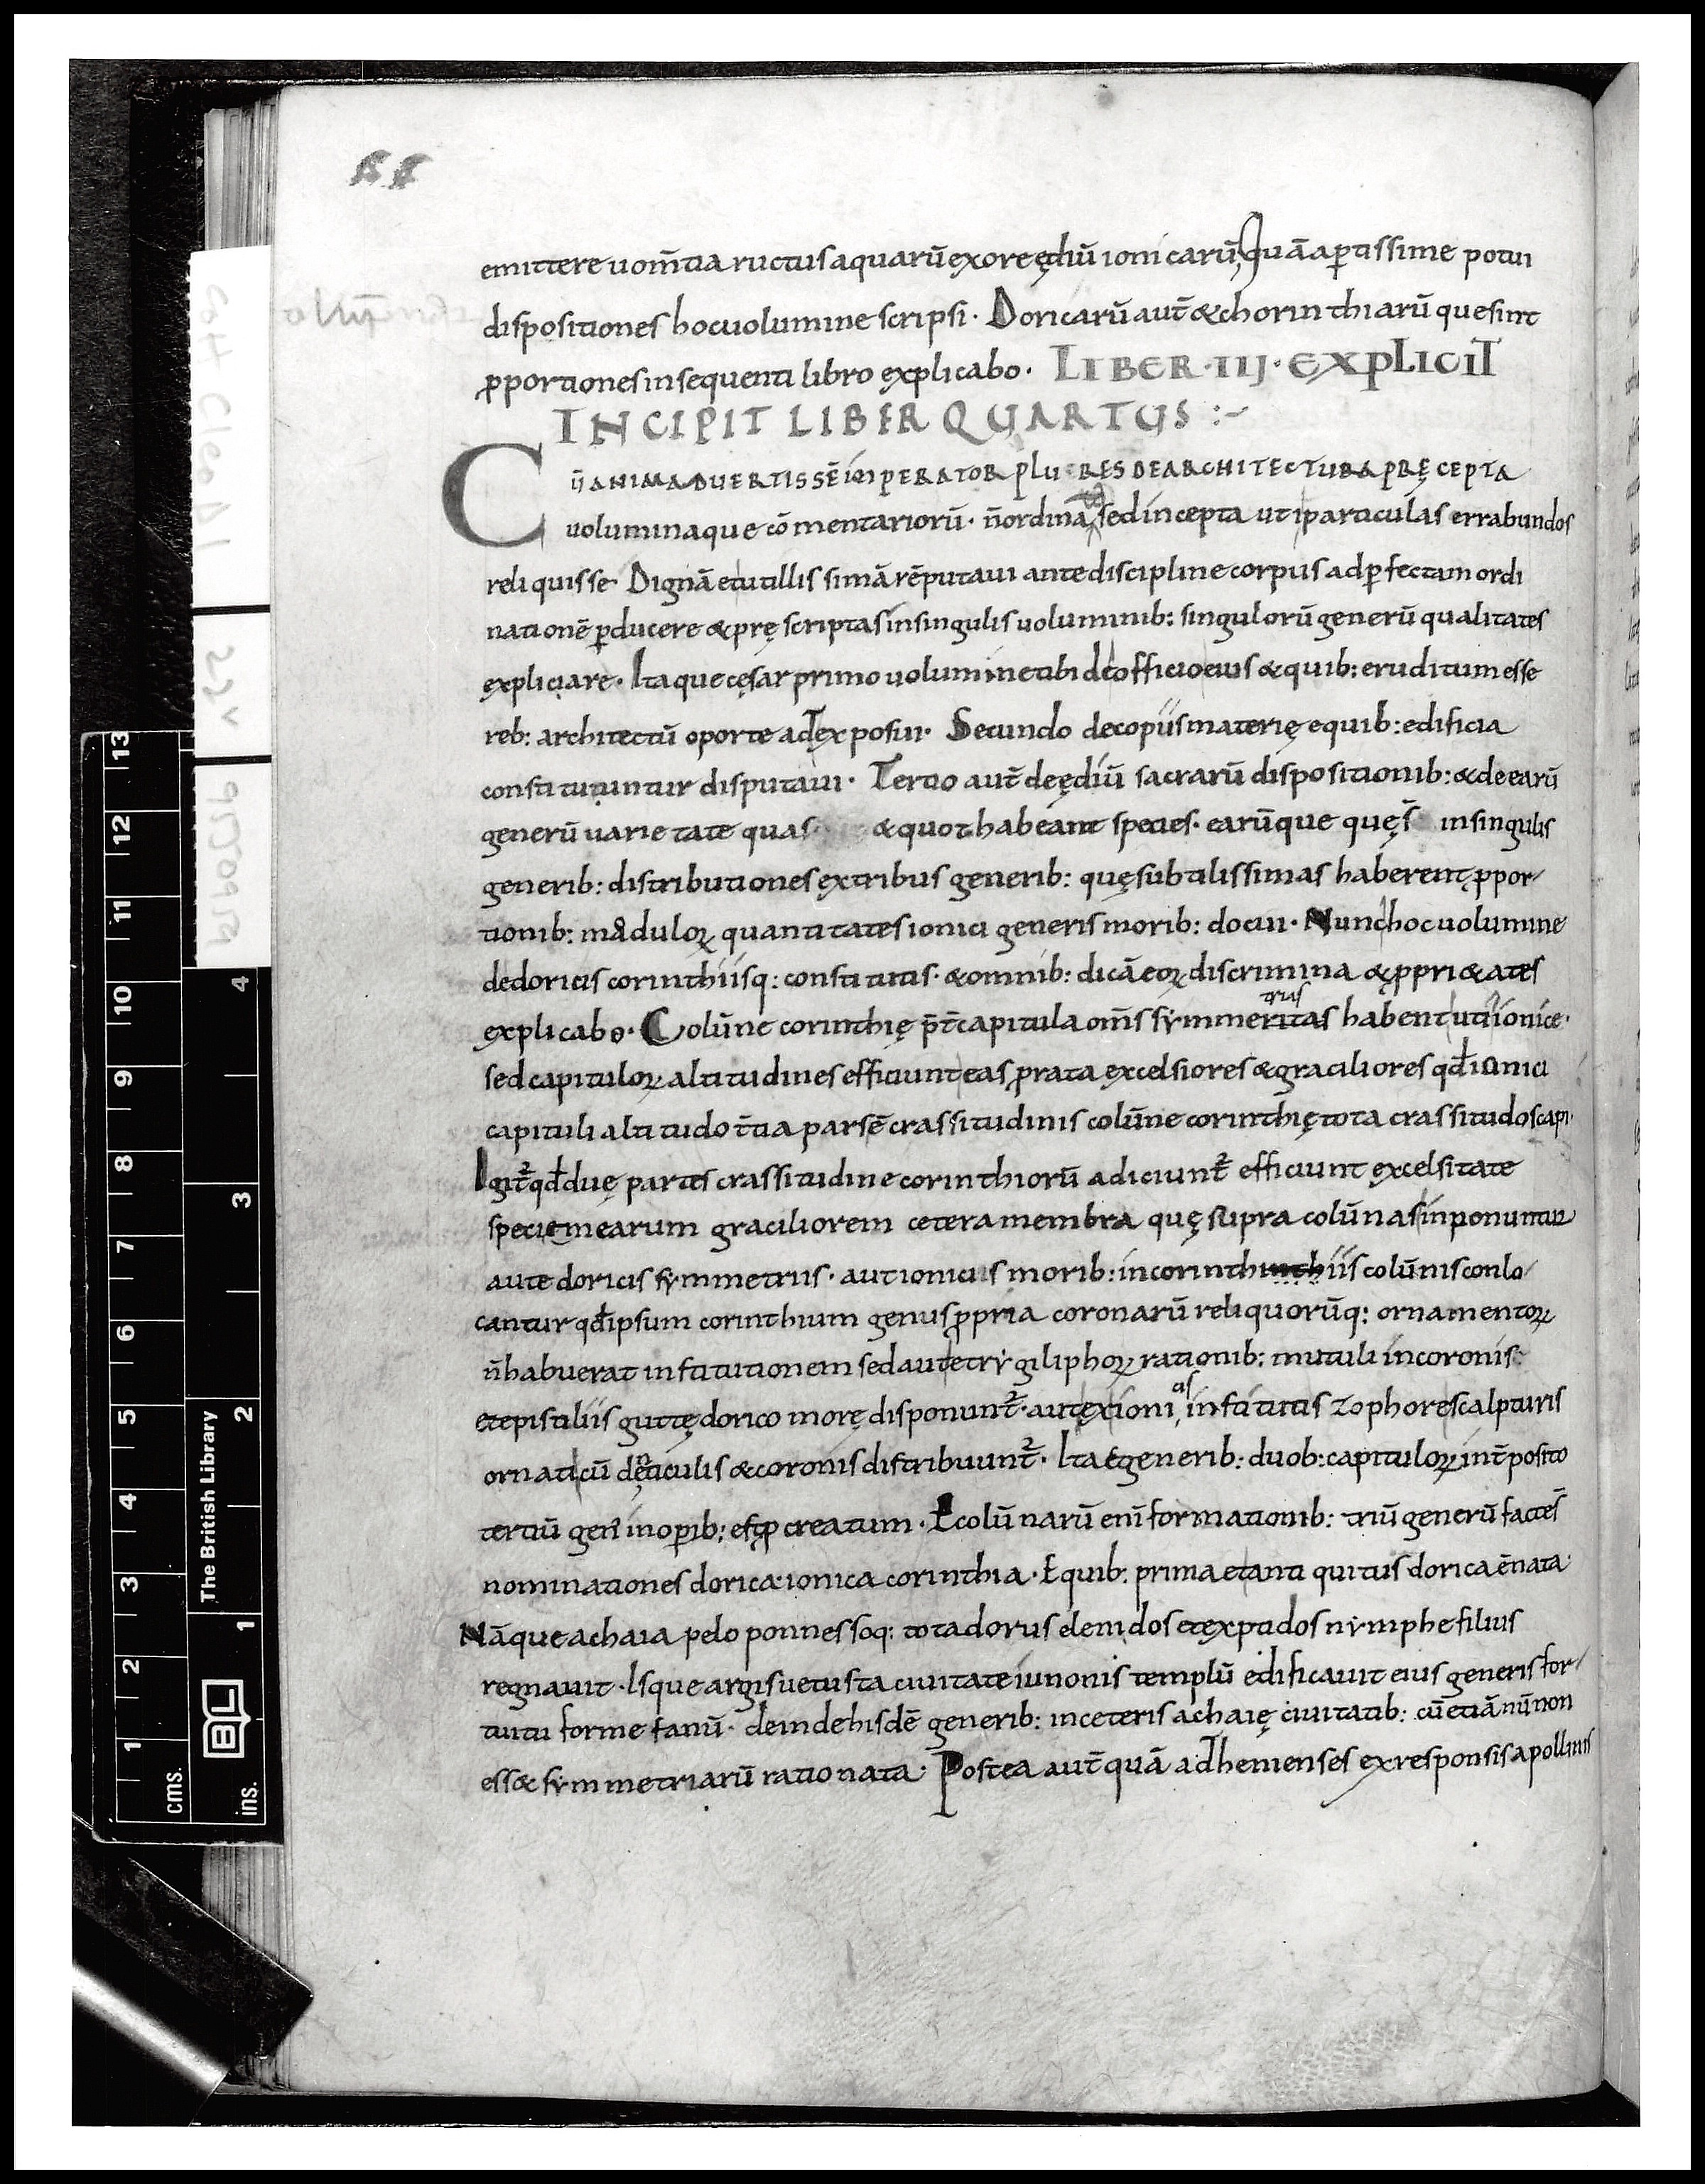 emittere uom̄tia ructus aquarū ex ore ędiū ionicarū, quā aꝑtissime potui
dispositiones hoc uolumine scripsi. Doricarū aut̄ & chorinthiarū que sint
ꝓportiones in sequenti libro explicabo. LIBER·IIJ·EXPLICIT
INCIPIT LIBER QUARTUS :~
Cū ANIMADUERTISSĒ IMPERATOR PLURES DE ARCHITECTURA PRĘCEPTA
uoluminaque cōmentariorū. n̄ ordinata sed incepta ut particulas errabundos
reliquisse. Dignā et utillissimā rē putaui ante discipline corpus ad ꝑfectam ordi
nationē ꝑducere & pręscriptas in singulis uoluminib: singulorū generū qualitates
expliciare. Itaque cęsar primo uolumine tibi de officio eius & quib: eruditum esse
reb: architectū oportead exposui. Secundo de copiis materię e quib: edificia
constitutuntur disputaui. Tertio aut̄ de ędiū sacrarū dispositionib: & de earū
generū uarietate quas & quot habeant species. earūque quęs̄ in singulis
generib: distributiones ex tribus generib: quę subtilissimas haberent ꝓpor
tionib: moduloꝝ quantitates ionici generis morib: docui. Nunc hoc uolumine
de doricis corinthiisq: constitutis. & omnib: dicā eoꝝ discrimina & ꝓpri&ates
explicabo. Colūne corinthię p̄t̄ capitula om̄s sẏmmeritas trias habent uti ionice.
sed capituloꝝ altitudines efficiunt eas ꝓ rata excelsiores & graciliores qd̄ ionici
capituli altitudo t̄tia pars ē crassitudinis colūne corinthię tota crassitudo scapi.
Igit᷑ qd̄ duę partes crassitudine corinthiorū adiciunt᷑ efficiunt excelsitate
speciem earum graciliorem cetera membra quę supra colūnas inponuntur
aut e doricis sẏmmetriis. aut ionicis morib: in corinthiis colūnis conlo
cantur qd̄ ipsum corinthium genus ꝓpria coronarū reliquorūq: ornamentoꝝ
n̄ habuerat institutionem sed aut e trẏgiliphoꝝ rationib: mutuli in coronis:
et epistiliis guttę dorico morę disponunt᷑. aut ex ionicis institutis zophore scalpturis
ornati cū denticulis & coronis distribuunt᷑. Ita e generib: duob: capituloꝝ int̄posito
tertiū gen̄ in oꝑib: est ꝓcreatum. E colūnarū enī formationib: triū generū factęs̄
nominationes dorica: ionica corinthia. E quib: prima et antiquitus dorica ē nata.
Nāque achaia peloponnessoq: tota dorus elenidos et exptidos nẏmphe filius
regnauit. Isque argis uetusta ciuitate iunonis templū edificauit eius generis for
tuitu forme fanū. deinde hisdē generib: in ceteris achaię ciuitatib: cū etiā nū non
ess& sẏmmetriarū ratio nata. Postea aut̄ quā adhenienses ex responsis apollinis
The British Library
BL
cms.
ins.
1 2 3 4 5 6 7 8 9 10 11 12 13
1 2 3 4